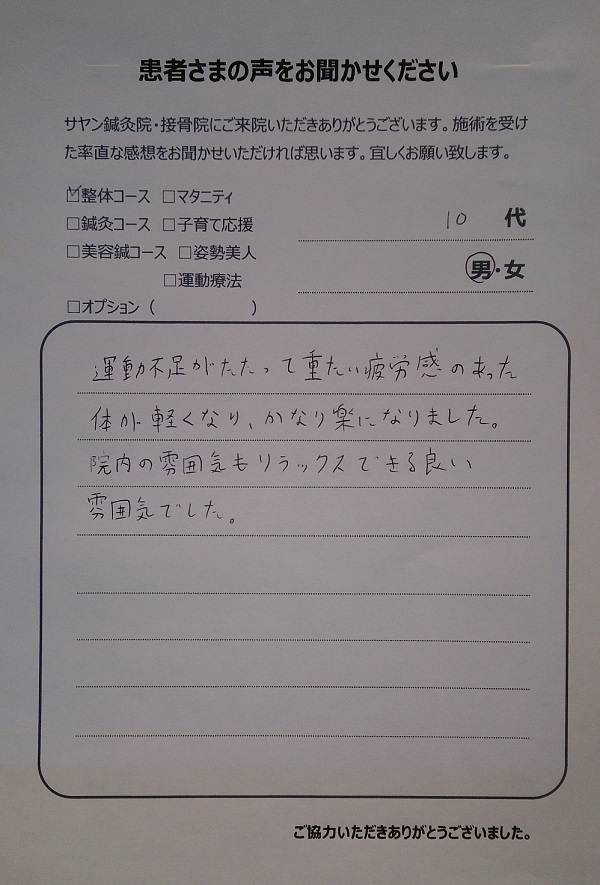 患者さまの声をお聞かせください
サヤン鍼灸院・接骨院にご来院いただきありがとうございます。施術を受け
た率直な感想をお聞かせいただければ思います。宜しくお願い致します。
☑整体コース □マタニティ
□鍼灸コース □子育て応援
10 代
□美容鍼コース □姿勢美人
男・女
□運動療法
□オプション（ ）
運動不足がたたって重たい疲労感のあった
体が軽くなり、かなり楽になりました。
院内の雰囲気もリラックスできる良い
雰囲気でした。
ご協力いただきありがとうございました。